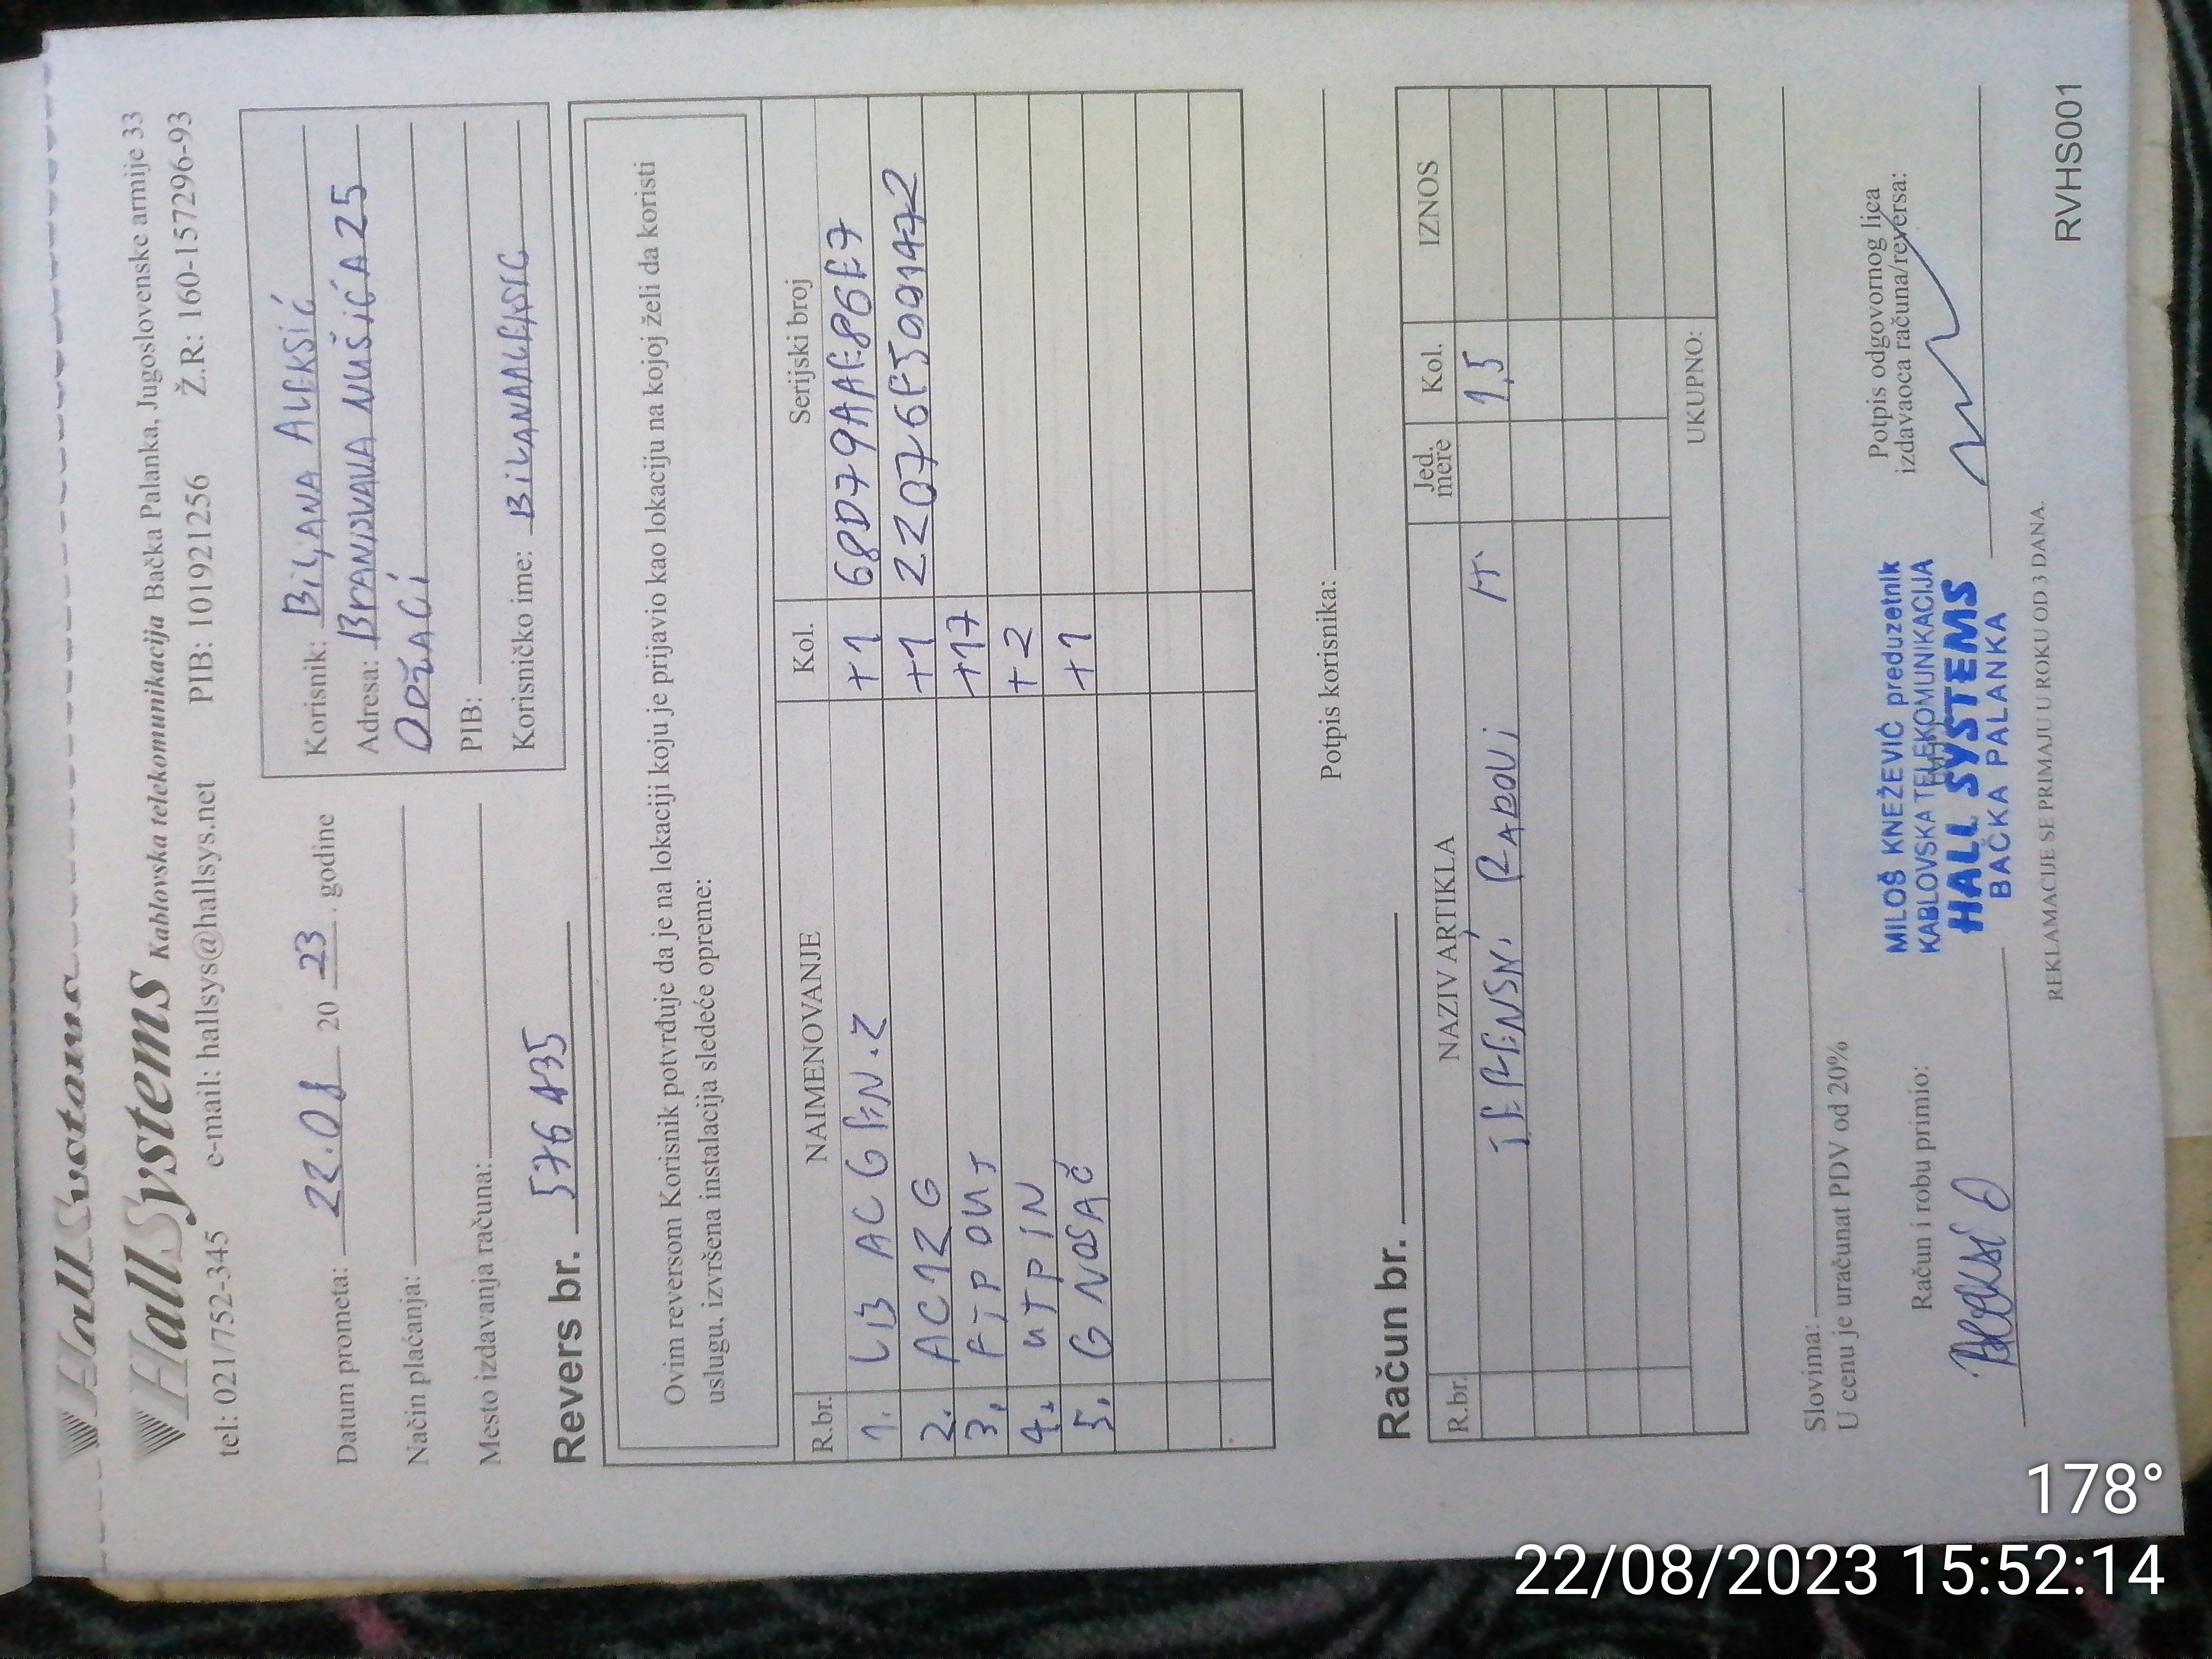 HallSystems
HallSystems Kablovska telekomunikacija Bačka Palanka, Jugoslovenske armije 33
tel: 021/752-345 e-mail: hallsys@hallsys.net PIB: 101921256 Ž.R: 160-157296-93
Datum prometa: 22.08 20 23. godine
Način plaćanja:
Mesto izdavanja računa:
Korisnik: BILJANA ALEKSIĆ
Adresa: BRANISLAVA NUŠIĆA 25
ODŽACI
PIB:
Korisničko ime: BILJANAALEKSIC
Revers br. 576435
Ovim reversom Korisnik potvrđuje da je na lokaciji koju je prijavio kao lokaciju na kojoj želi da koristi
uslugu, izvršena instalacija sledeće opreme:
R.br. NAIMENOVANJE Kol. Serijski broj
1. LB AC GEN.2 +1 68D79AAE86E7
2. AC12G +1 22076F5001472
3. FTP OUT +17
4. UTP IN +2
5. G NOSAČ +1
Potpis korisnika:
Račun br.
R.br. NAZIV ARTIKLA Jed. mere Kol. IZNOS
TERENSKI RADOVI H 1,5
UKUPNO:
Slovima:
U cenu je uračunat PDV od 20%
Račun i robu primio:
MILOŠ KNEŽEVIĆ preduzetnik
KABLOVSKA TELEKOMUNIKACIJA
HALL SYSTEMS
BAČKA PALANKA
Potpis odgovornog lica
izdavaoca računa/reversa:
REKLAMACIJE SE PRIMAJU U ROKU OD 3 DANA.
RVHS001
178°
22/08/2023 15:52:14